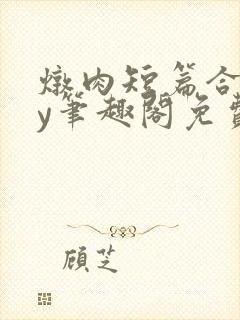 燉肉短篇合
y笔趣阁免费
顾芝